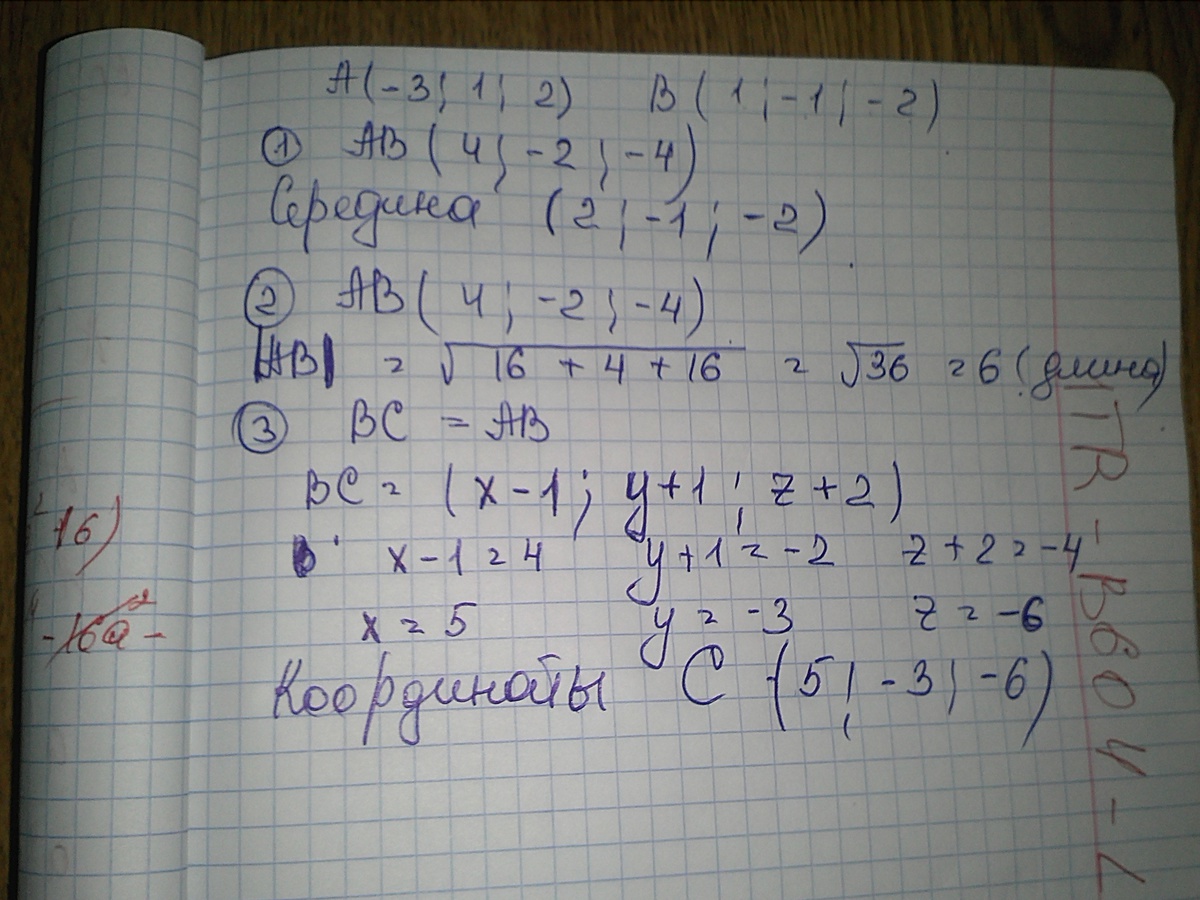 A(-3; 1; 2) B(1; -1; -2)
① AB(4; -2; -4)
Середина (2; -1; -2)
② AB(4; -2; -4)
|AB| = √16 + 4 + 16 = √36 = 6 (длина)
③ BC = AB
BC = (x-1; y+1; z+2)
x-1=4 y+1=-2 z+2=-4
x=5 y=-3 z=-6
Координаты C(5; -3; -6)
16)
-16a-